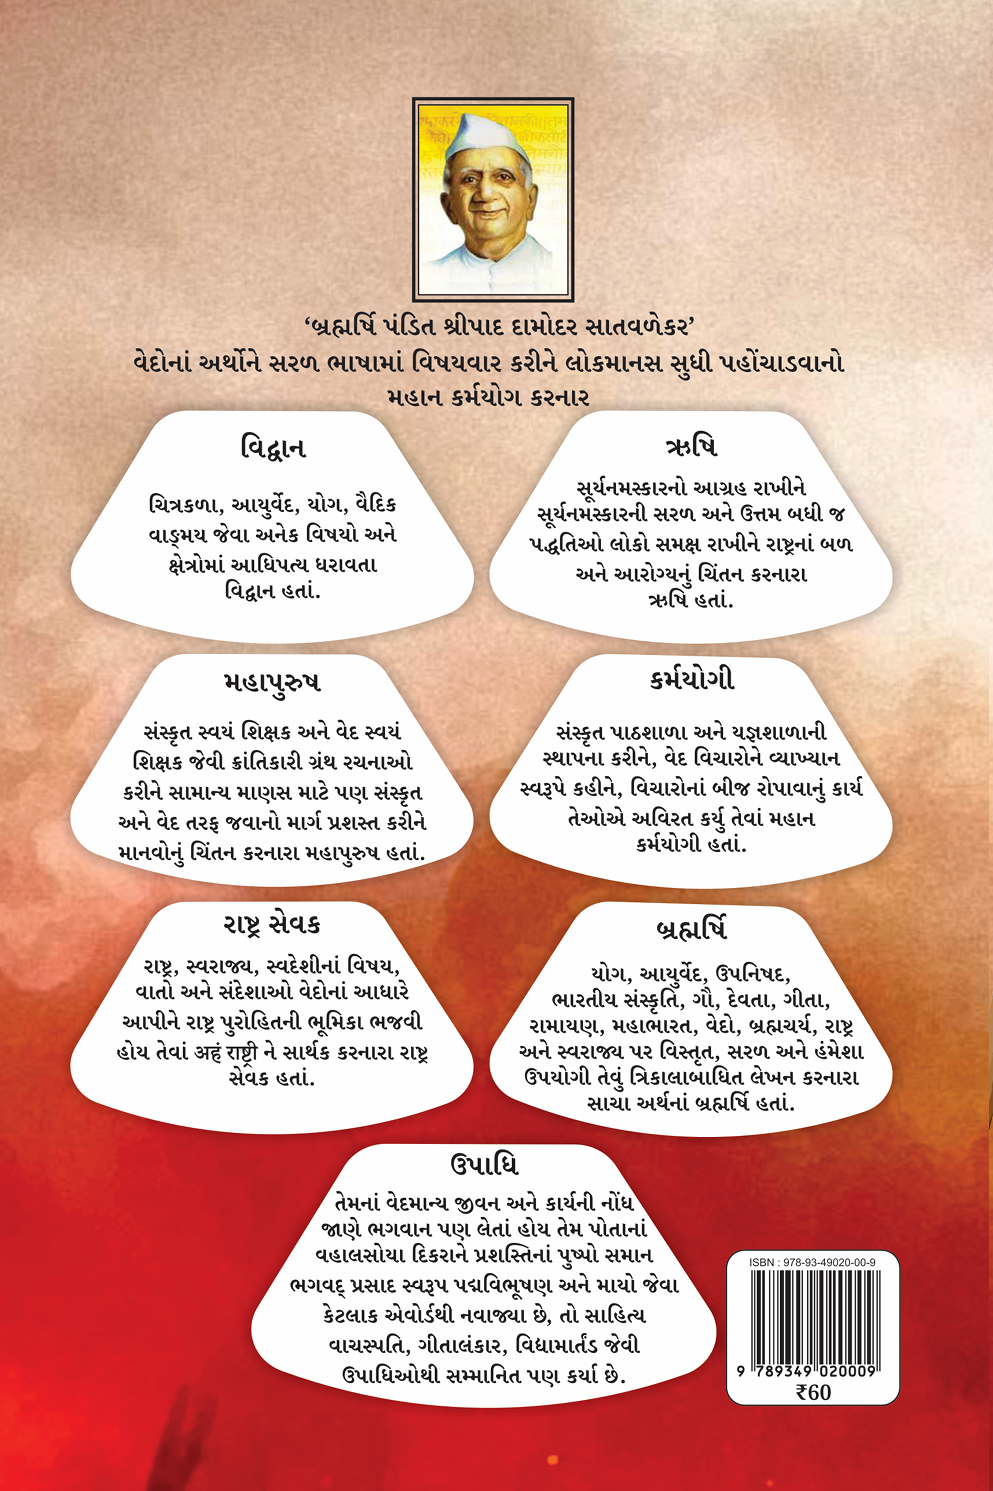 ‘બ્રહ્મર્ષિ પંડિત શ્રીપાદ દામોદર સાતવળેકર’
વેદોનાં અર્થોને સરળ ભાષામાં વિષયવાર કરીને લોકમાનસ સુધી પહોંચાડવાનો
મહાન કર્મયોગ કરનાર
વિદ્વાન
ચિત્રકળા, આયુર્વેદ, યોગ, વૈદિક
વાઙ્મય જેવા અનેક વિષયો અને
ક્ષેત્રોમાં આધિપત્ય ધરાવતા
વિદ્વાન હતાં.
ઋષિ
સૂર્યનમસ્કારનો આગ્રહ રાખીને
સૂર્યનમસ્કારની સરળ અને ઉત્તમ બધી જ
પદ્ધતિઓ લોકો સમક્ષ રાખીને રાષ્ટ્રનાં બળ
અને આરોગ્યનું ચિંતન કરનારા
ઋષિ હતાં.
મહાપુરુષ
સંસ્કૃત સ્વયં શિક્ષક અને વેદ સ્વયં
શિક્ષક જેવી ક્રાંતિકારી ગ્રંથ રચનાઓ
કરીને સામાન્ય માણસ માટે પણ સંસ્કૃત
અને વેદ તરફ જવાનો માર્ગ પ્રશસ્ત કરીને
માનવોનું ચિંતન કરનારા મહાપુરુષ હતાં.
કર્મયોગી
સંસ્કૃત પાઠશાળા અને યજ્ઞશાળાની
સ્થાપના કરીને, વેદ વિચારોને વ્યાખ્યાન
સ્વરૂપે કહીને, વિચારોનાં બીજ રોપાવાનું કાર્ય
તેઓએ અવિરત કર્યુ તેવાં મહાન
કર્મયોગી હતાં.
રાષ્ટ્ર સેવક
રાષ્ટ્ર, સ્વરાજ્ય, સ્વદેશીનાં વિષય,
વાતો અને સંદેશાઓ વેદોનાં આધારે
આપીને રાષ્ટ્ર પુરોહિતની ભૂમિકા ભજવી
હોય તેવાં अहं राष्ट्री ને સાર્થક કરનારા રાષ્ટ્ર
સેવક હતાં.
બ્રહ્મર્ષિ
યોગ, આયુર્વેદ, ઉપનિષદ,
ભારતીય સંસ્કૃતિ, ગૌ, દેવતા, ગીતા,
રામાયણ, મહાભારત, વેદો, બ્રહ્મચર્ય, રાષ્ટ્ર
અને સ્વરાજ્ય પર વિસ્તૃત, સરળ અને હંમેશા
ઉપયોગી તેવું ત્રિકાલાબાધિત લેખન કરનારા
સાચા અર્થનાં બ્રહ્મર્ષિ હતાં.
ઉપાધિ
તેમનાં વેદમાન્ય જીવન અને કાર્યની નોંધ
જાણે ભગવાન પણ લેતાં હોય તેમ પોતાનાં
વહાલસોયા દિકરાને પ્રશસ્તિનાં પુષ્પો સમાન
ભગવદ્ પ્રસાદ સ્વરૂપ પદ્મવિભૂષણ અને માયો જેવા
કેટલાક એવોર્ડથી નવાજ્યા છે, તો સાહિત્ય
વાચસ્પતિ, ગીતાલંકાર, વિદ્યામાર્તંડ જેવી
ઉપાધિઓથી સમ્માનિત પણ કર્યા છે.
ISBN : 978-93-49020-00-9
9 789349 020009
₹60